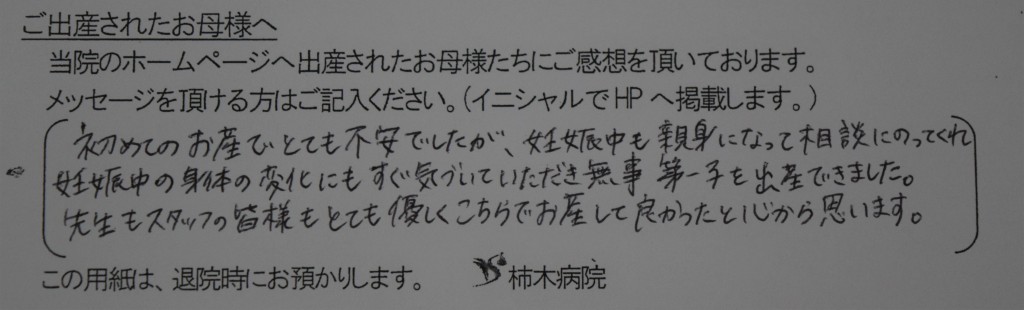 ご出産されたお母様へ
当院のホームページへ出産されたお母様たちにご感想を頂いております。
メッセージを頂ける方はご記入ください。(イニシャルでHPへ掲載します。)
初めてのお産でとても不安でしたが、妊娠中も親身になって相談にのってくれ
妊娠中の身体の変化にもすぐ気づいていただき無事第一子を出産できました。
先生もスタッフの皆様もとても優しくこちらでお産して良かったと心から思います。
この用紙は、退院時にお預かりします。 柿木病院